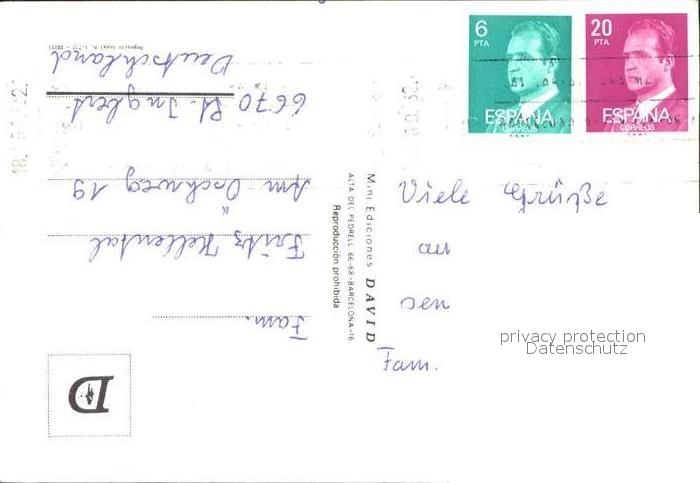 6
PTA
ESPAÑA
CORREOS
20
PTA
ESPAÑA
CORREOS
Viele Grüße
aus
Fam.
privacy protection
Datenschutz
Mini Ediciones DAVID
ALTA DEL PEDRELL 66-68-BARCELONA-16
Reproducción prohibida
Fam.
Fritz Hellental
Am Öschweg 19
6670 St. Ingbert
Deutschland
D